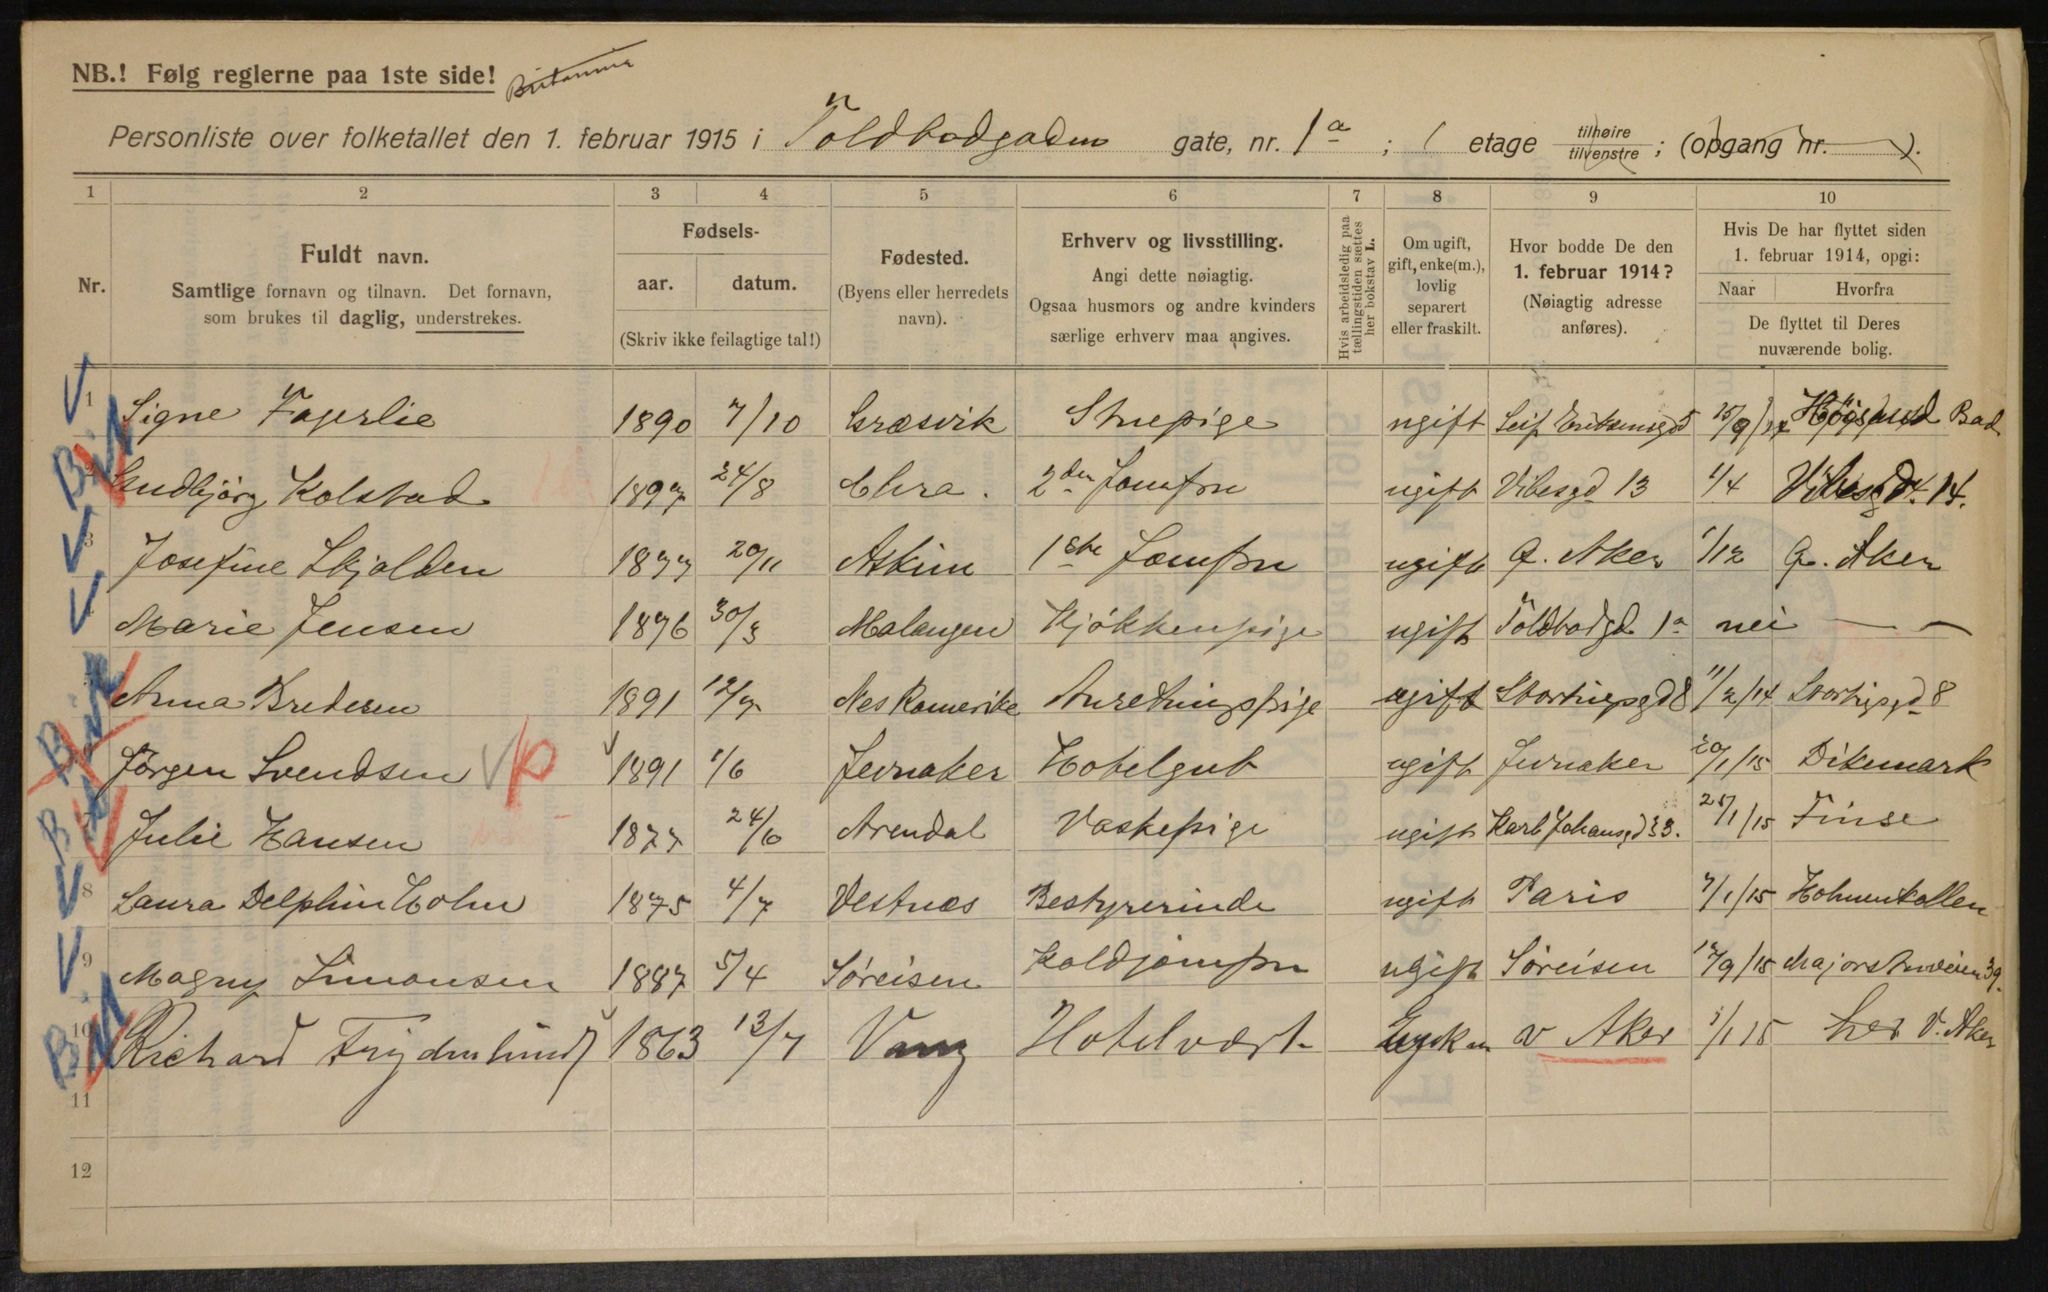 NB.! Følg reglerne paa 1ste side!
Britannia
Personliste over folketallet den 1. februar 1915 i Toldbodgaden gate, nr. 1a ; 1 etage tilhøire tilvenstre ; (opgang nr. ).
1 2 3 4 5 6 7 8 9 10
Nr.
Fuldt navn.
Samtlige fornavn og tilnavn. Det fornavn,
som brukes til daglig, understrekes.
Fødsels-
aar. datum.
(Skriv ikke feilagtige tal!)
Fødested.
(Byens eller herredets
navn).
Erhverv og livsstilling.
Angi dette nøiagtig.
Ogsaa husmors og andre kvinders
særlige erhverv maa angives.
Hvis arbeidsledig paa
tællingstiden sættes
her bokstav L.
Om ugift,
gift, enke(m.),
lovlig
separert
eller fraskilt.
Hvor bodde De den
1. februar 1914?
(Nøiagtig adresse
anføres).
Hvis De har flyttet siden
1. februar 1914, opgi:
Naar Hvorfra
De flyttet til Deres
nuværende bolig.
1 Signe Fagerlie 1890 7/10 Græsvik Stuepige ugift Leif Eriksensgd 5 15/9/14 Bad
2 Gudbjörg Kolstad 1897 24/8 Chra. 2den Jomfru ugift Vibesgd 13 1/4 Vibesgdt. 14.
3 Josefine Skjolden 1877 20/11 Askim 1ste Jomfru ugift Ø. Aker 1/12 Ø. Aker
4 Marie Jensen 1876 30/3 Malangen Kjøkkenpige ugift Toldbodgd 1a nei — —
5 Anna Bredesen 1891 12/7 Nes Romerike Anretningspige ugift Stortingsgd 8 11/2/14 Stortingsgd 8
6 Jørgen Svendsen 1891 1/6 Jevnaker Hotelgut ugift Jevnaker 20/1/15 Dikemark
7 Julie Hansen 1877 24/6 Arendal Vaskepige ugift Karl Johansgd 33. 25/1/15 Finse
8 Laura Delphin Holm 1875 4/7 Vestnes Bestyrerinde ugift Paris 7/1/15 Holmenkollen
9 Magny Simonsen 1887 5/4 Søreisen Koldjomfru ugift Søreisen 12/9/15 Majorstuveien 39.
10 Richard Frydenlund 1863 13/7 Vang Hotelvært v Aker 1/1 15 V. Aker
11
12